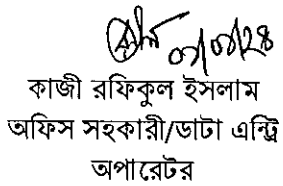 কাজী রফিকুল ইসলাম
অফিস সহকারী/ডাটা এন্ট্রি
অপারেটর